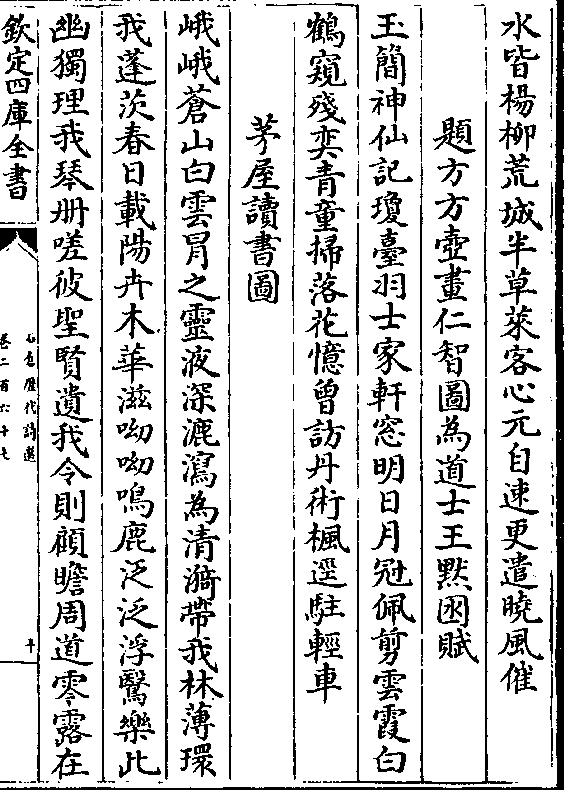 水皆楊柳荒城半草萊客心元自速更遣曉風催
題方方壺畫仁智圖為道士王默囦賦
玉簡神仙記瓊臺羽士家軒窓明日月冠佩剪雲霞白
鶴窺殘奕青童掃落花憶曾訪丹術楓逕駐輕車
茅屋讀書圖
峨峨蒼山白雲冐之靈液深漉瀉為清漪帶我林薄環
我蓬茨春日載陽卉木華滋呦呦鳴鹿泛泛浮鷖樂此
幽獨理我琴册嗟彼聖賢遺我令則顧瞻周道零露在
欽定四庫全書
石倉歷代詩選
卷二百六十七
十